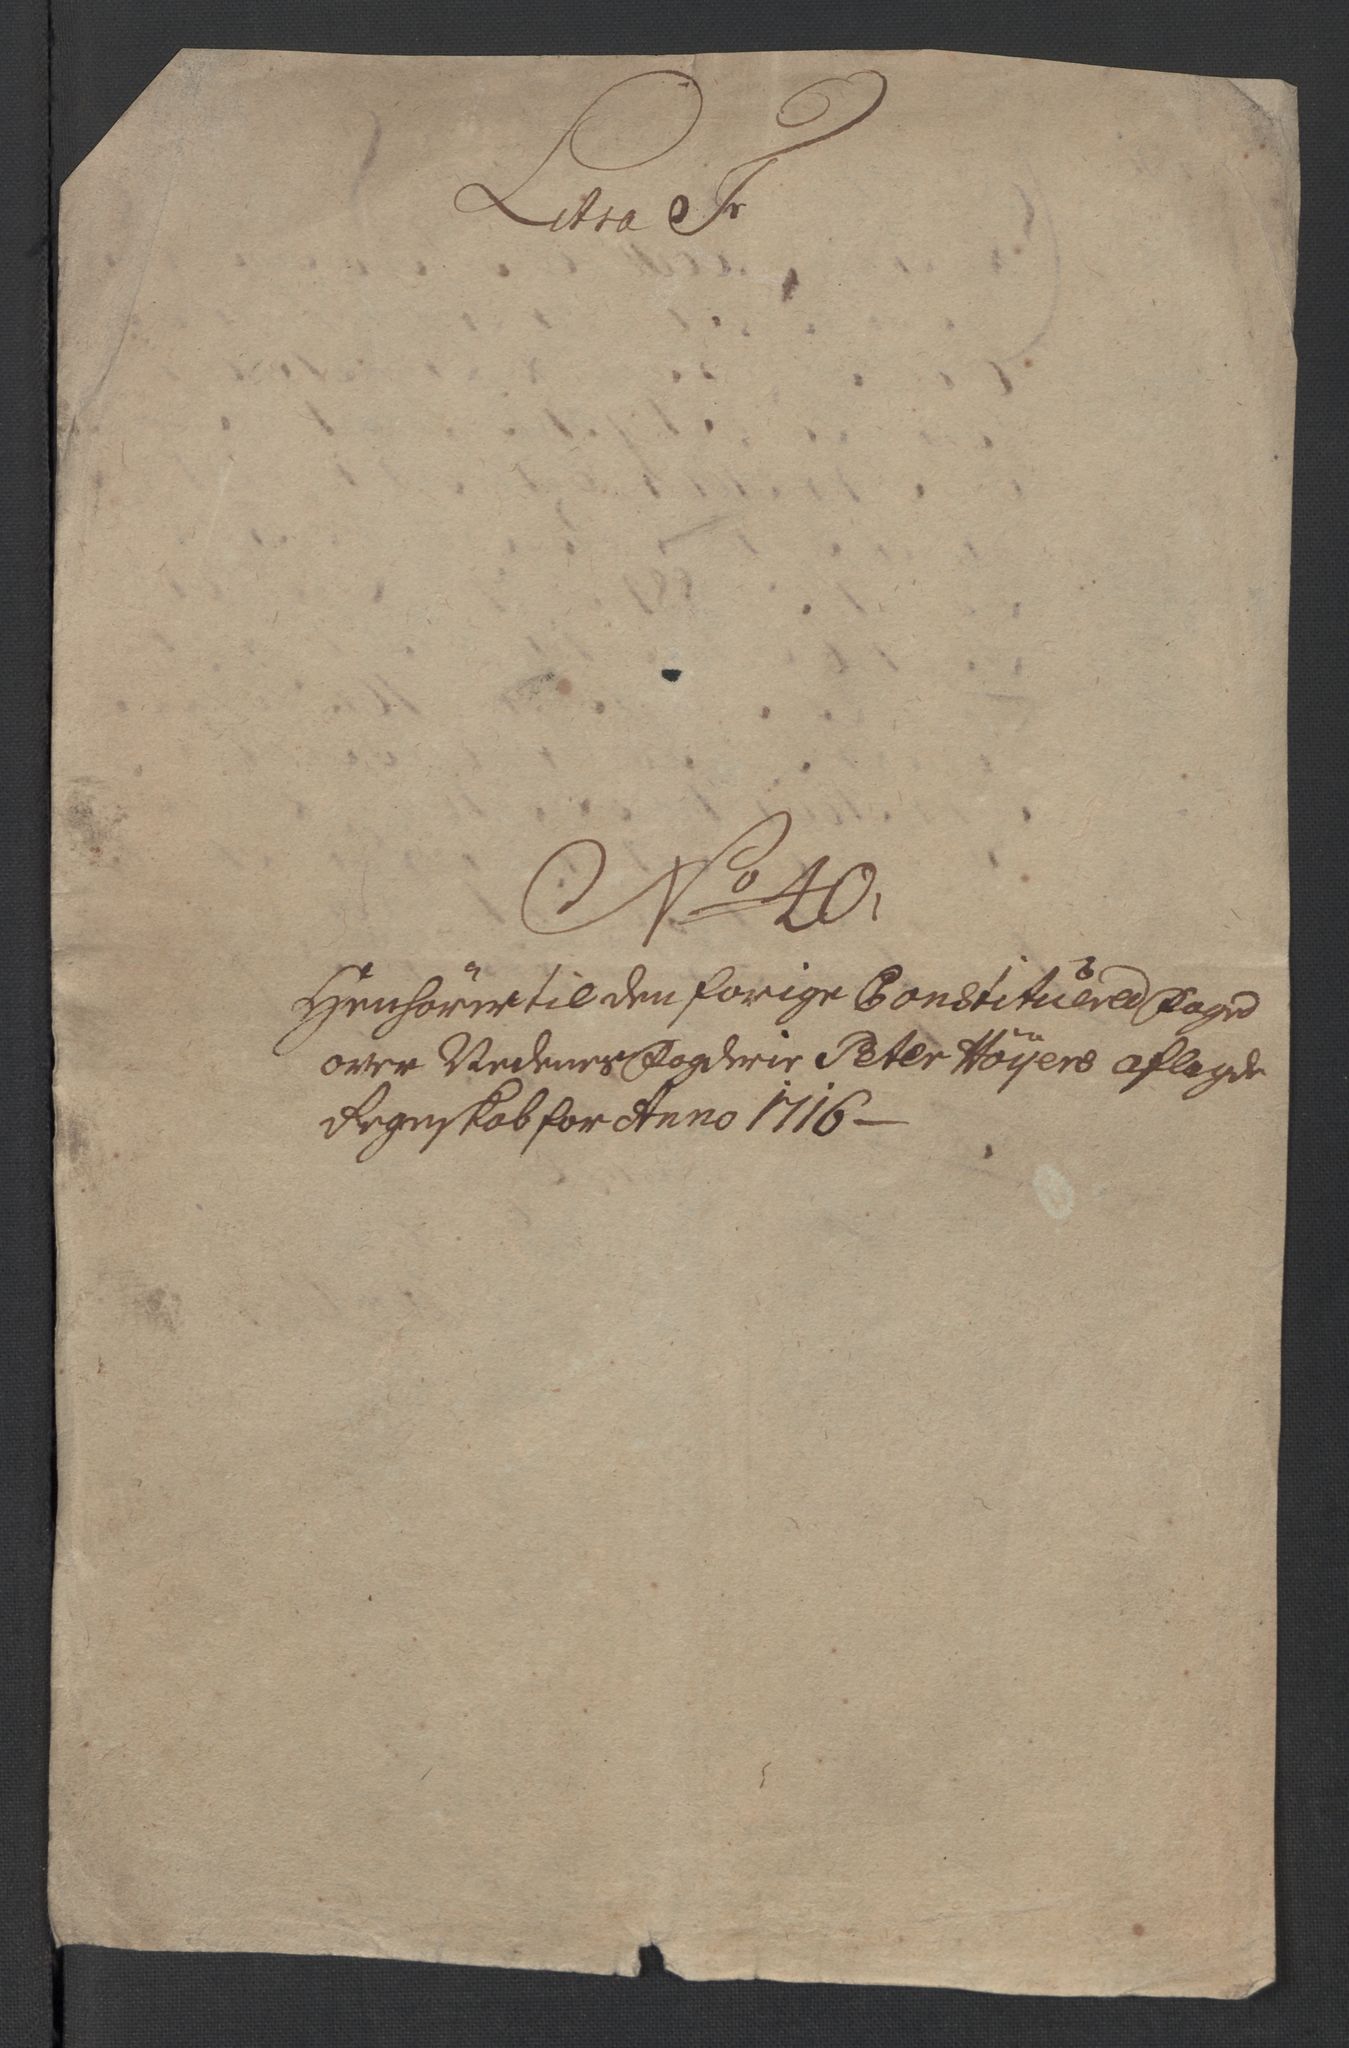 Litra F.
No 40.
Henhörer til den forige Constituered Foged
over Nedenes Fogderie Peter Höyers aflagde
Regnskab for Anno 1716 –